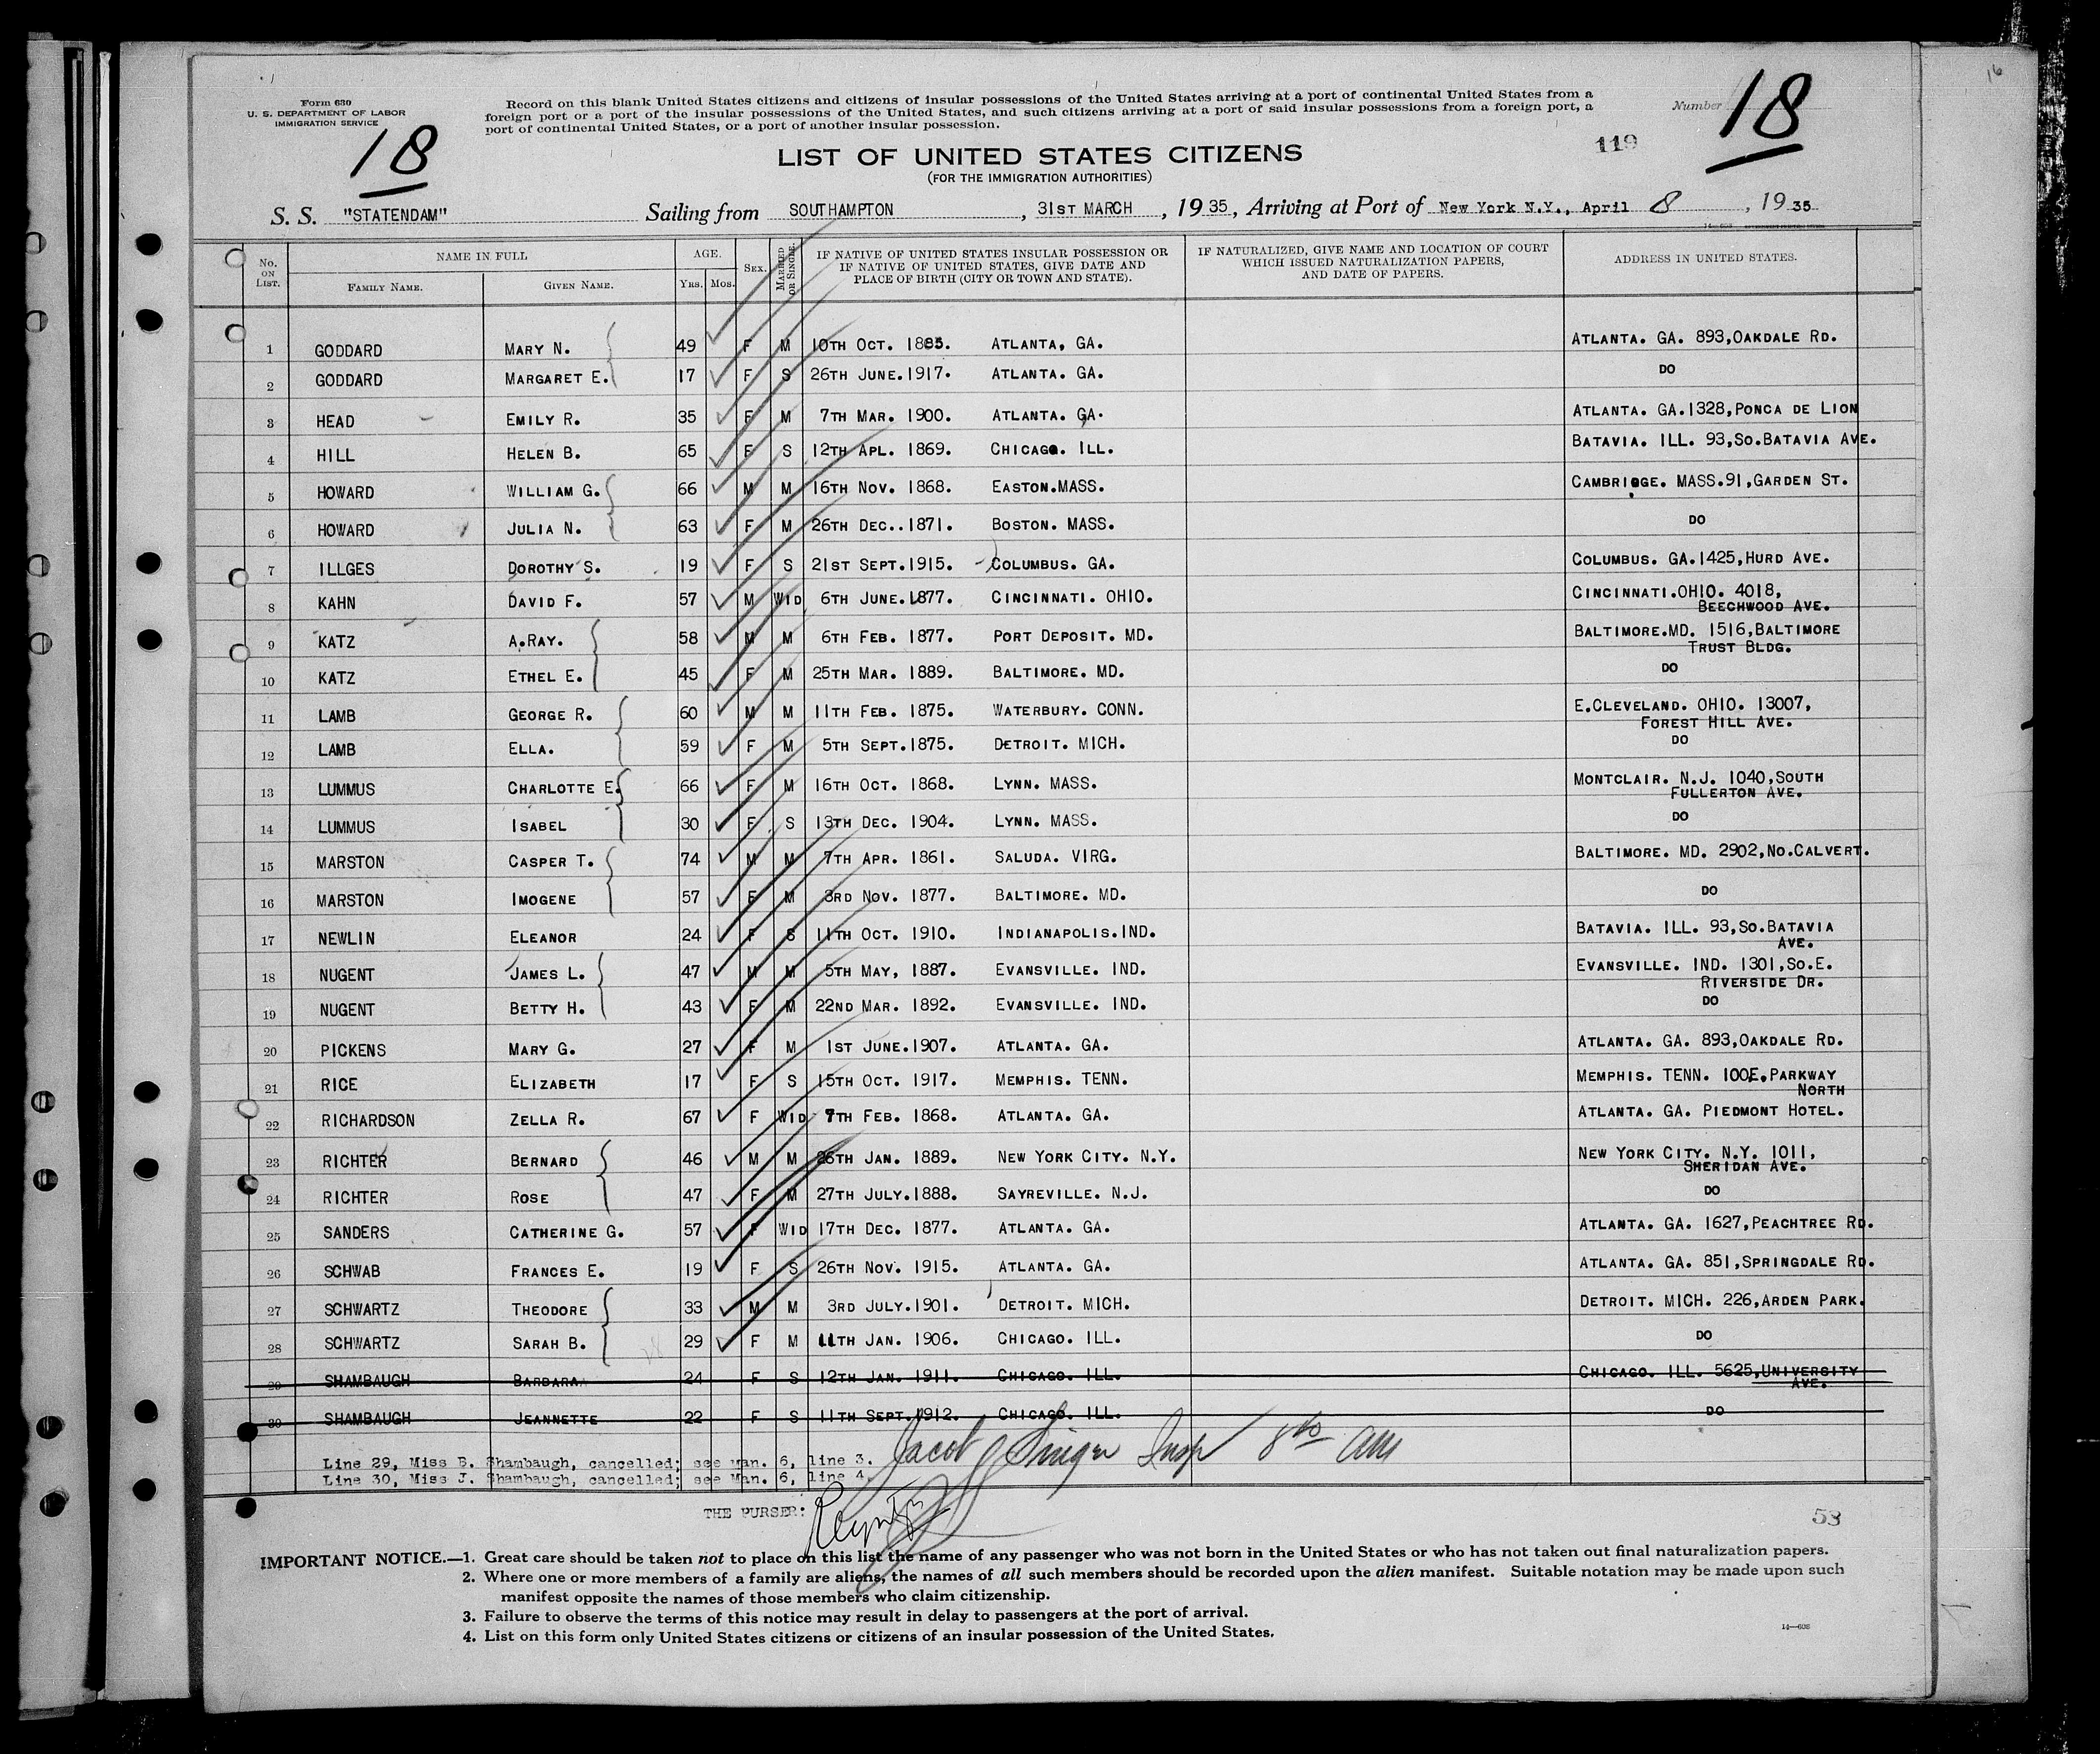 16
Form 630
U. S. DEPARTMENT OF LABOR
IMMIGRATION SERVICE
18
Record on this blank United States citizens and citizens of insular possessions of the United States arriving at a port of continental United States from a
foreign port or a port of the insular possessions of the United States, and such citizens arriving at a port of said insular possessions from a foreign port, a
port of continental United States, or a port of another insular possession.
Number 18
119
LIST OF UNITED STATES CITIZENS
(FOR THE IMMIGRATION AUTHORITIES)
S. S. "STATENDAM" Sailing from SOUTHAMPTON, 31ST MARCH, 1935, Arriving at Port of NEW YORK N.Y., APRIL 8, 1935
No. ON LIST. NAME IN FULL FAMILY NAME. GIVEN NAME. AGE. YRS. MOS. SEX. MARRIED OR SINGLE. IF NATIVE OF UNITED STATES INSULAR POSSESSION OR IF NATIVE OF UNITED STATES, GIVE DATE AND PLACE OF BIRTH (CITY OR TOWN AND STATE). IF NATURALIZED, GIVE NAME AND LOCATION OF COURT WHICH ISSUED NATURALIZATION PAPERS, AND DATE OF PAPERS. ADDRESS IN UNITED STATES.
1 GODDARD MARY N. 49 F M 10TH OCT. 1885. ATLANTA, GA. ATLANTA. GA. 893,OAKDALE RD.
2 GODDARD MARGARET E. 17 F S 26TH JUNE.1917. ATLANTA. GA. DO
3 HEAD EMILY R. 35 F M 7TH MAR. 1900. ATLANTA. GA. ATLANTA. GA.1328,PONCA DE LION
4 HILL HELEN B. 65 F S 12TH APL. 1869. CHICAGO. ILL. BATAVIA. ILL. 93,SO.BATAVIA AVE.
5 HOWARD WILLIAM G. 66 M M 16TH NOV. 1868. EASTON.MASS. CAMBRIDGE. MASS.91,GARDEN ST.
6 HOWARD JULIA N. 63 F M 26TH DEC..1871. BOSTON. MASS. DO
7 ILLGES DOROTHY S. 19 F S 21ST SEPT.1915. COLUMBUS. GA. COLUMBUS. GA.1425,HURD AVE.
8 KAHN DAVID F. 57 M WID 6TH JUNE.1877. CINCINNATI. OHIO. CINCINNATI.OHIO. 4018,
BEECHWOOD AVE.
9 KATZ A.RAY. 58 M M 6TH FEB. 1877. PORT DEPOSIT. MD. BALTIMORE.MD. 1516,BALTIMORE
TRUST BLDG.
10 KATZ ETHEL E. 45 F M 25TH MAR. 1889. BALTIMORE. MD. DO
11 LAMB GEORGE R. 60 M M 11TH FEB. 1875. WATERBURY. CONN. E.CLEVELAND. OHIO. 13007,
FOREST HILL AVE.
12 LAMB ELLA. 59 F M 5TH SEPT.1875. DETROIT. MICH. DO
13 LUMMUS CHARLOTTE E. 66 F M 16TH OCT. 1868. LYNN. MASS. MONTCLAIR. N.J. 1040,SOUTH
FULLERTON AVE.
14 LUMMUS ISABEL 30 F S 13TH DEC. 1904. LYNN. MASS. DO
15 MARSTON CASPER T. 74 M M 7TH APR. 1861. SALUDA. VIRG. BALTIMORE. MD. 2902,NO.CALVERT.
16 MARSTON IMOGENE 57 F M 3RD NOV. 1877. BALTIMORE. MD. DO
17 NEWLIN ELEANOR 24 F S 11TH OCT. 1910. INDIANAPOLIS.IND. BATAVIA. ILL. 93,SO.BATAVIA
AVE.
18 NUGENT JAMES L. 47 M M 5TH MAY, 1887. EVANSVILLE. IND. EVANSVILLE. IND. 1301,SO.E.
RIVERSIDE DR.
19 NUGENT BETTY H. 43 F M 22ND MAR. 1892. EVANSVILLE. IND. DO
20 PICKENS MARY G. 27 F M 1ST JUNE.1907. ATLANTA. GA. ATLANTA. GA. 893,OAKDALE RD.
21 RICE ELIZABETH 17 F S 15TH OCT. 1917. MEMPHIS. TENN. MEMPHIS. TENN. 100E.PARKWAY
NORTH
22 RICHARDSON ZELLA R. 67 F WID 7TH FEB. 1868. ATLANTA. GA. ATLANTA. GA. PIEDMONT HOTEL.
23 RICHTER BERNARD 46 M M 26TH JAN. 1889. NEW YORK CITY. N.Y. NEW YORK CITY. N.Y. 1011,
SHERIDAN AVE.
24 RICHTER ROSE 47 F M 27TH JULY.1888. SAYREVILLE. N.J. DO
25 SANDERS CATHERINE G. 57 F WID 17TH DEC. 1877. ATLANTA. GA. ATLANTA. GA. 1627,PEACHTREE RD.
26 SCHWAB FRANCES E. 19 F S 26TH NOV. 1915. ATLANTA. GA. ATLANTA. GA. 851,SPRINGDALE RD.
27 SCHWARTZ THEODORE 33 M M 3RD JULY.1901. DETROIT. MICH. DETROIT. MICH. 226,ARDEN PARK.
28 SCHWARTZ SARAH B. 29 F M 11TH JAN. 1906. CHICAGO. ILL. DO
29 SHAMBAUGH BARBARA 24 F S 12TH JAN. 1911. CHICAGO. ILL. CHICAGO. ILL. 5625,UNIVERSITY
AVE.
30 SHAMBAUGH JEANNETTE 22 F S 11TH SEPT.1912. CHICAGO. ILL. DO
Line 29, Miss B. Shambaugh, cancelled; see man. 6, line 3.
Line 30, Miss J. Shambaugh, cancelled; see man. 6, line 4.
Jacob Singer Insp
THE PURSER:
53
IMPORTANT NOTICE.—1. Great care should be taken not to place on this list the name of any passenger who was not born in the United States or who has not taken out final naturalization papers.
2. Where one or more members of a family are aliens, the names of all such members should be recorded upon the alien manifest. Suitable notation may be made upon such
manifest opposite the names of those members who claim citizenship.
3. Failure to observe the terms of this notice may result in delay to passengers at the port of arrival.
4. List on this form only United States citizens or citizens of an insular possession of the United States.